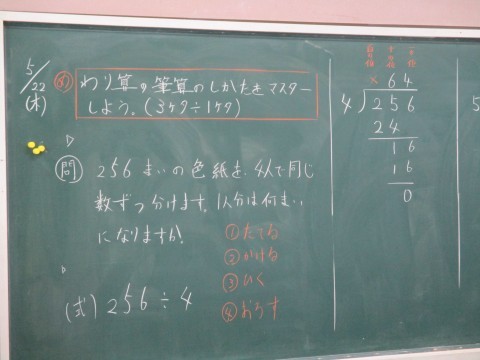 5/22
(木)
め わり算の筆算のしかたをマスター
しよう。(3ケタ÷1ケタ)
問 256まいの色紙を、4人で同じ
数ずつ分けます。1人分は何まい
になりますか?
(式) 256÷4
①たてる
②かける
③ひく
④おろす
百の位 十の位 一の位
× 6 4
4)256
24
16
16
0
5